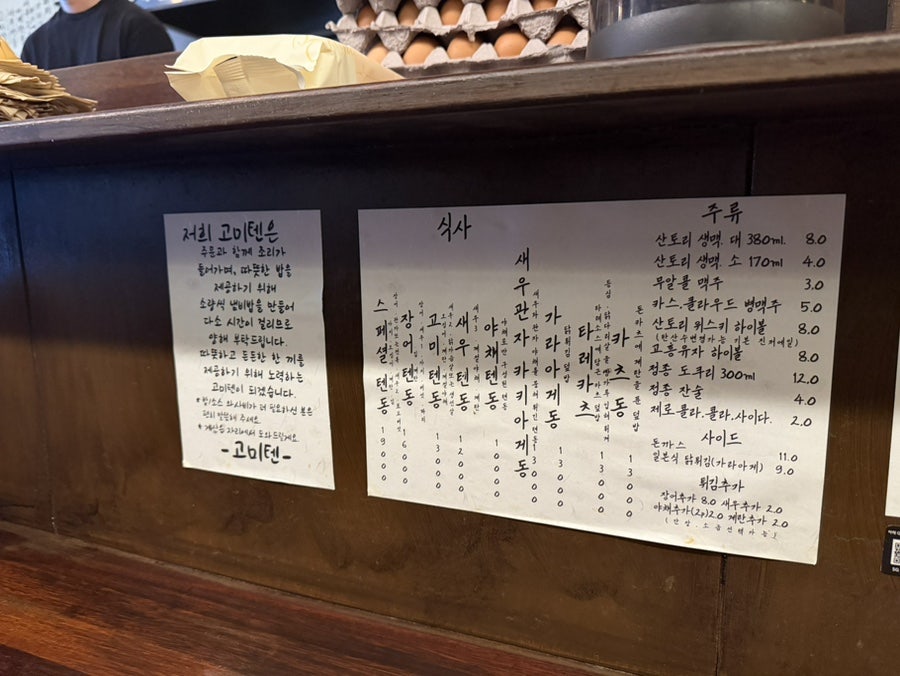 저희 고미텐은
주문과 함께 조리가
들어가며, 따뜻한 밥을
제공하기 위해
소량씩 냄비밥을 만들어
다소 시간이 걸리므로
양해 부탁드립니다.
따뜻하고 든든한 한 끼를
제공하기 위해 노력하는
고미텐이 되겠습니다.
*장/소스 와사비가 더 필요하신 분은
편히 말씀해 주세요.
*계산은 자리에서 도와드릴게요
-고미텐-
식사
스페셜텐동 19000
장어텐동 16000
고미텐동 13000
새우텐동 12000
야채텐동 10000
새우관자카키아게동 13000
가라아게동 13000
닭튀김 덮밥
타레카츠 13000
카츠동 13000
돈카츠에 계란을 푼 덮밥
주류
산토리 생맥. 대 380ml. 8.0
산토리 생맥. 소 170ml 4.0
무알콜 맥주 3.0
카스.클라우드 병맥주 5.0
산토리 위스키 하이볼 8.0
고흥유자 하이볼 8.0
정종 도쿠리 300ml 12.0
정종 잔술 4.0
제로콜라.콜라.사이다. 2.0
사이드
돈까스 11.0
일본식 닭튀김(가라아게) 9.0
튀김추가
장어추가 8.0 새우추가 2.0
야채추가(2p)2.0 계란추가 2.0